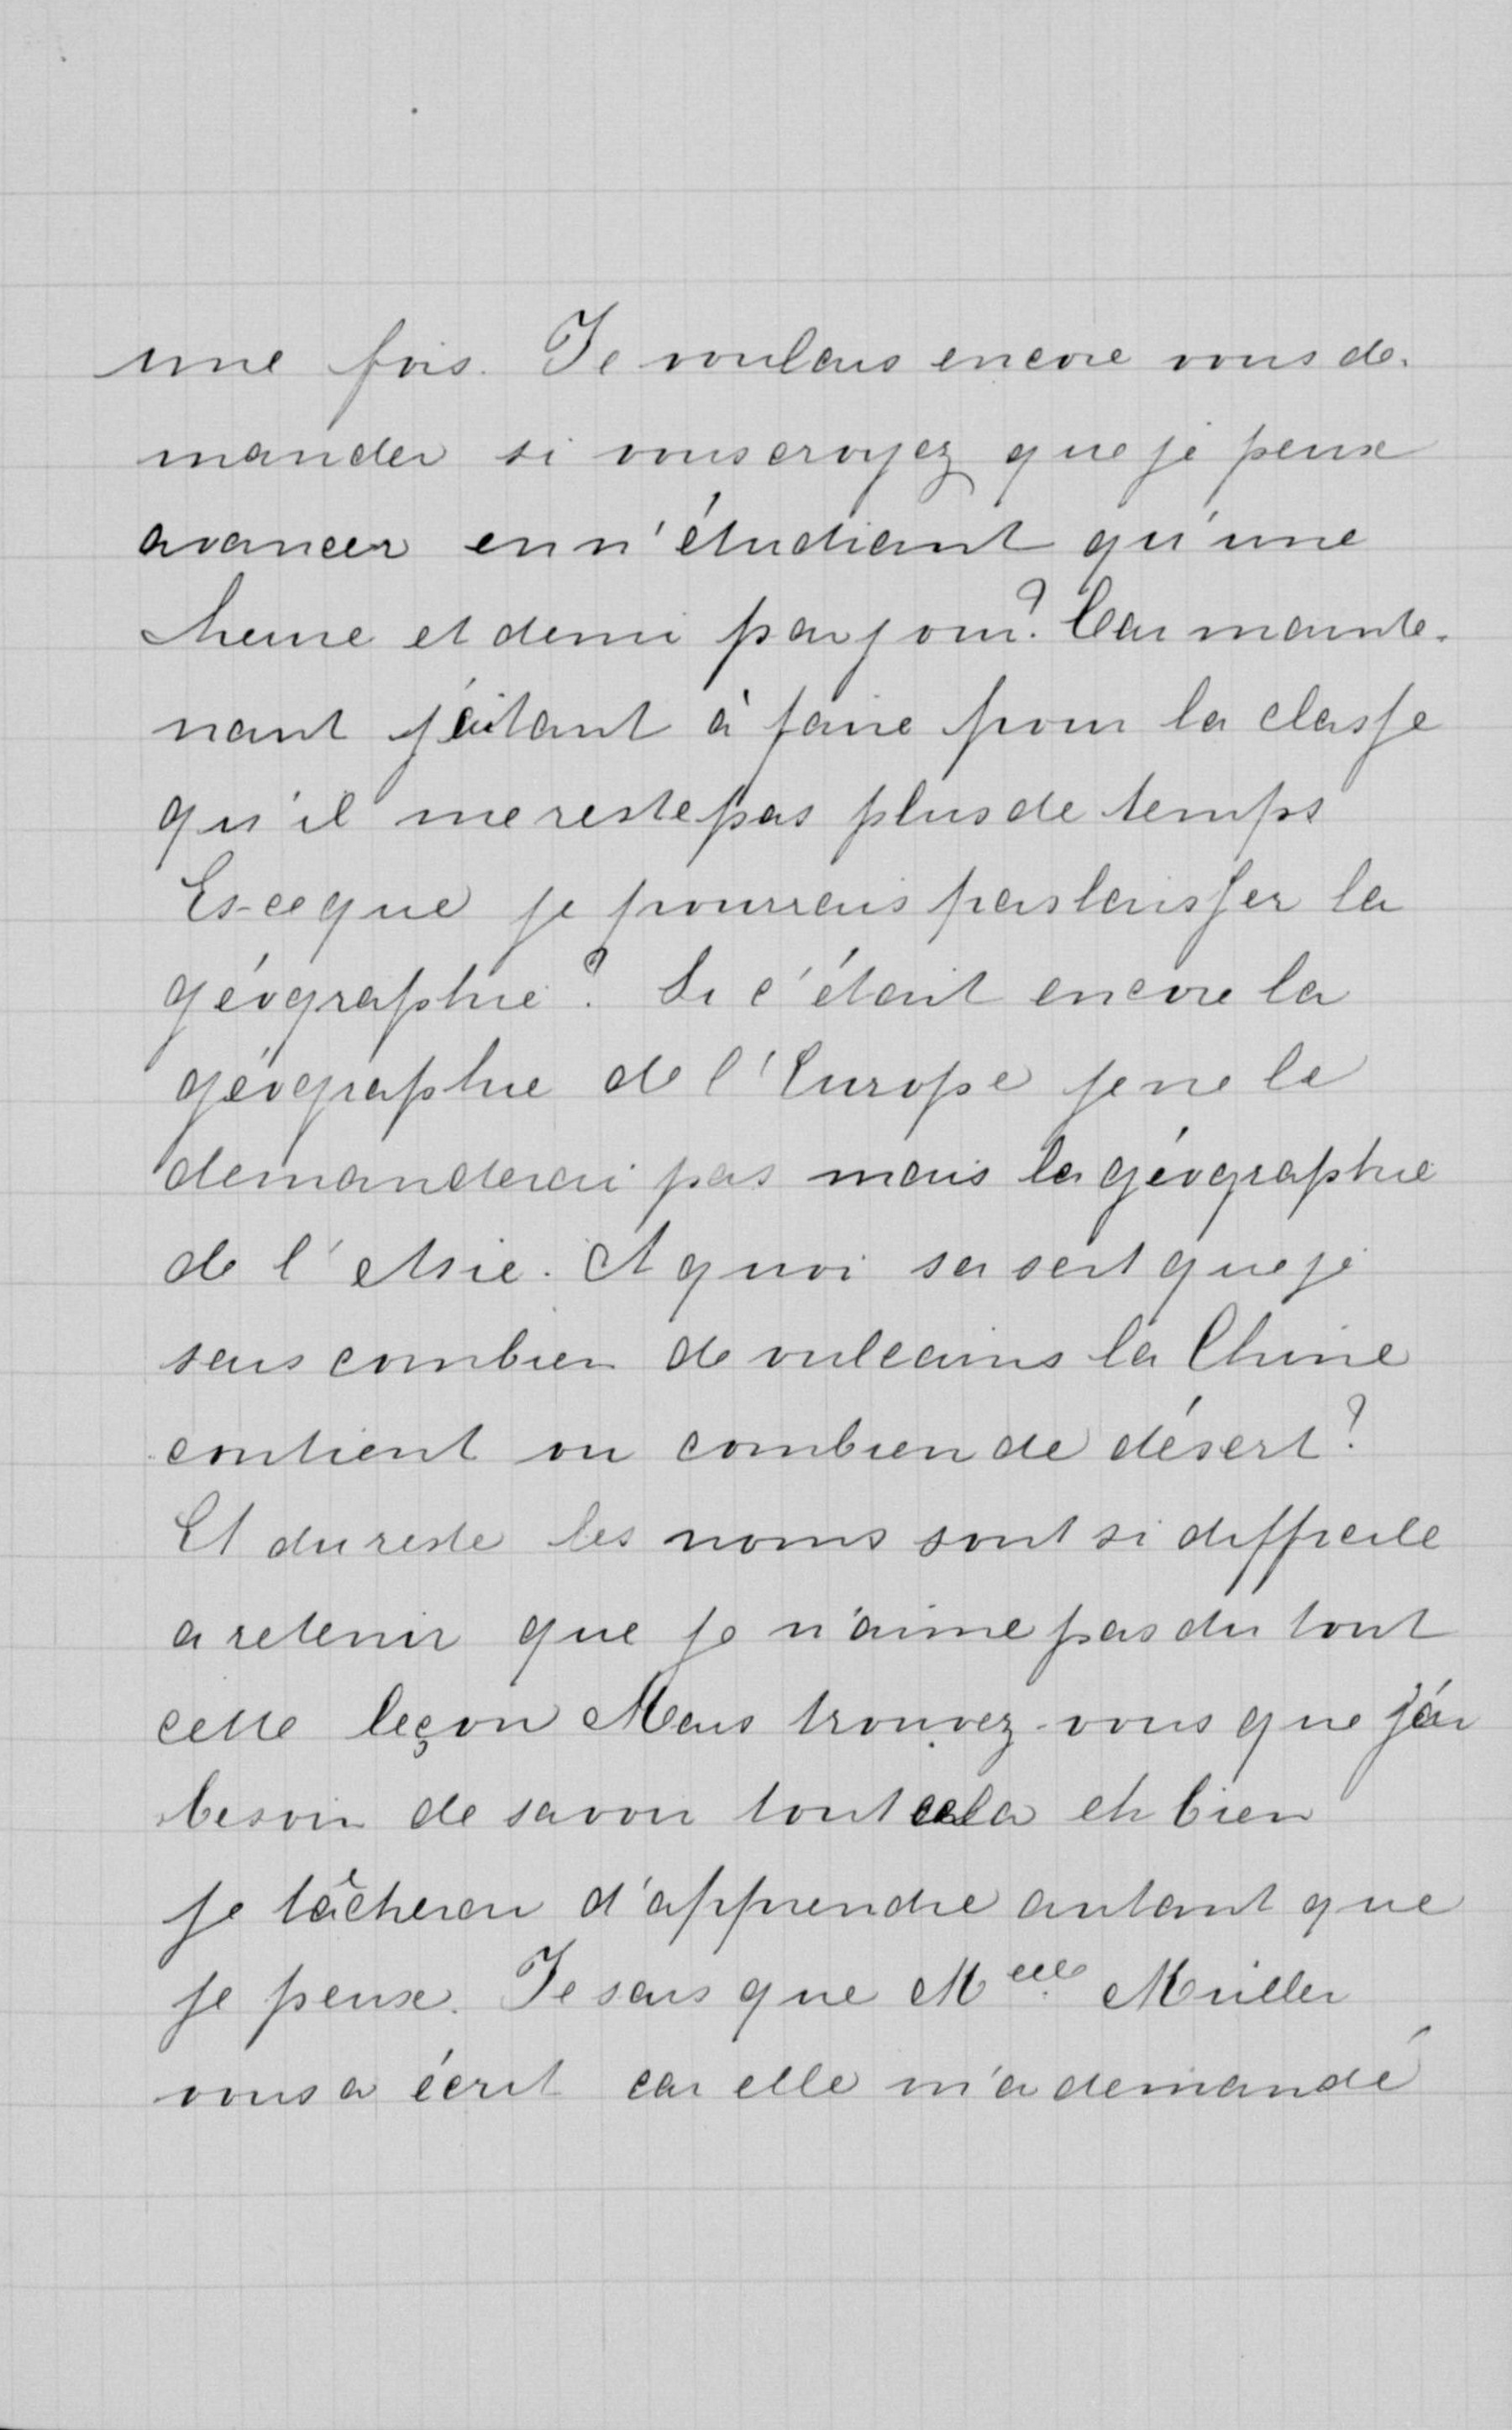 une fois. Je voulais encore vous de-
mander si vous croyez que je peux
avancer en n'étudiant qu'une
heure et demi par jour? Car mainte-
nant j'ai tant à faire pour la classe
qu'il me reste pas plus de temps
Es-ce que je pourrais pas laisser la
géographie? Si c'était encore la
géographie de l'Europe je ne le
demanderai pas mais la géographie
de l'Asie. A quoi sa sert que je
sais combien de vulcains la Chine
contient ou combien de désert?
Et du reste les noms sont si difficile
a retenir que je n'aime pas du tout
cette leçon Mais trouvez-vous que j'ai
besoin de savoir tout cela eh bien
je tâcherai d'apprendre autant que
je peux. Je sais que Melle Müller
vous a écrit car elle m'a demandé